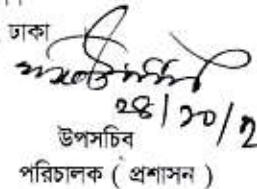 ঢাকা
২৪/১০/২
উপসচিব
পরিচালক ( প্রশাসন )